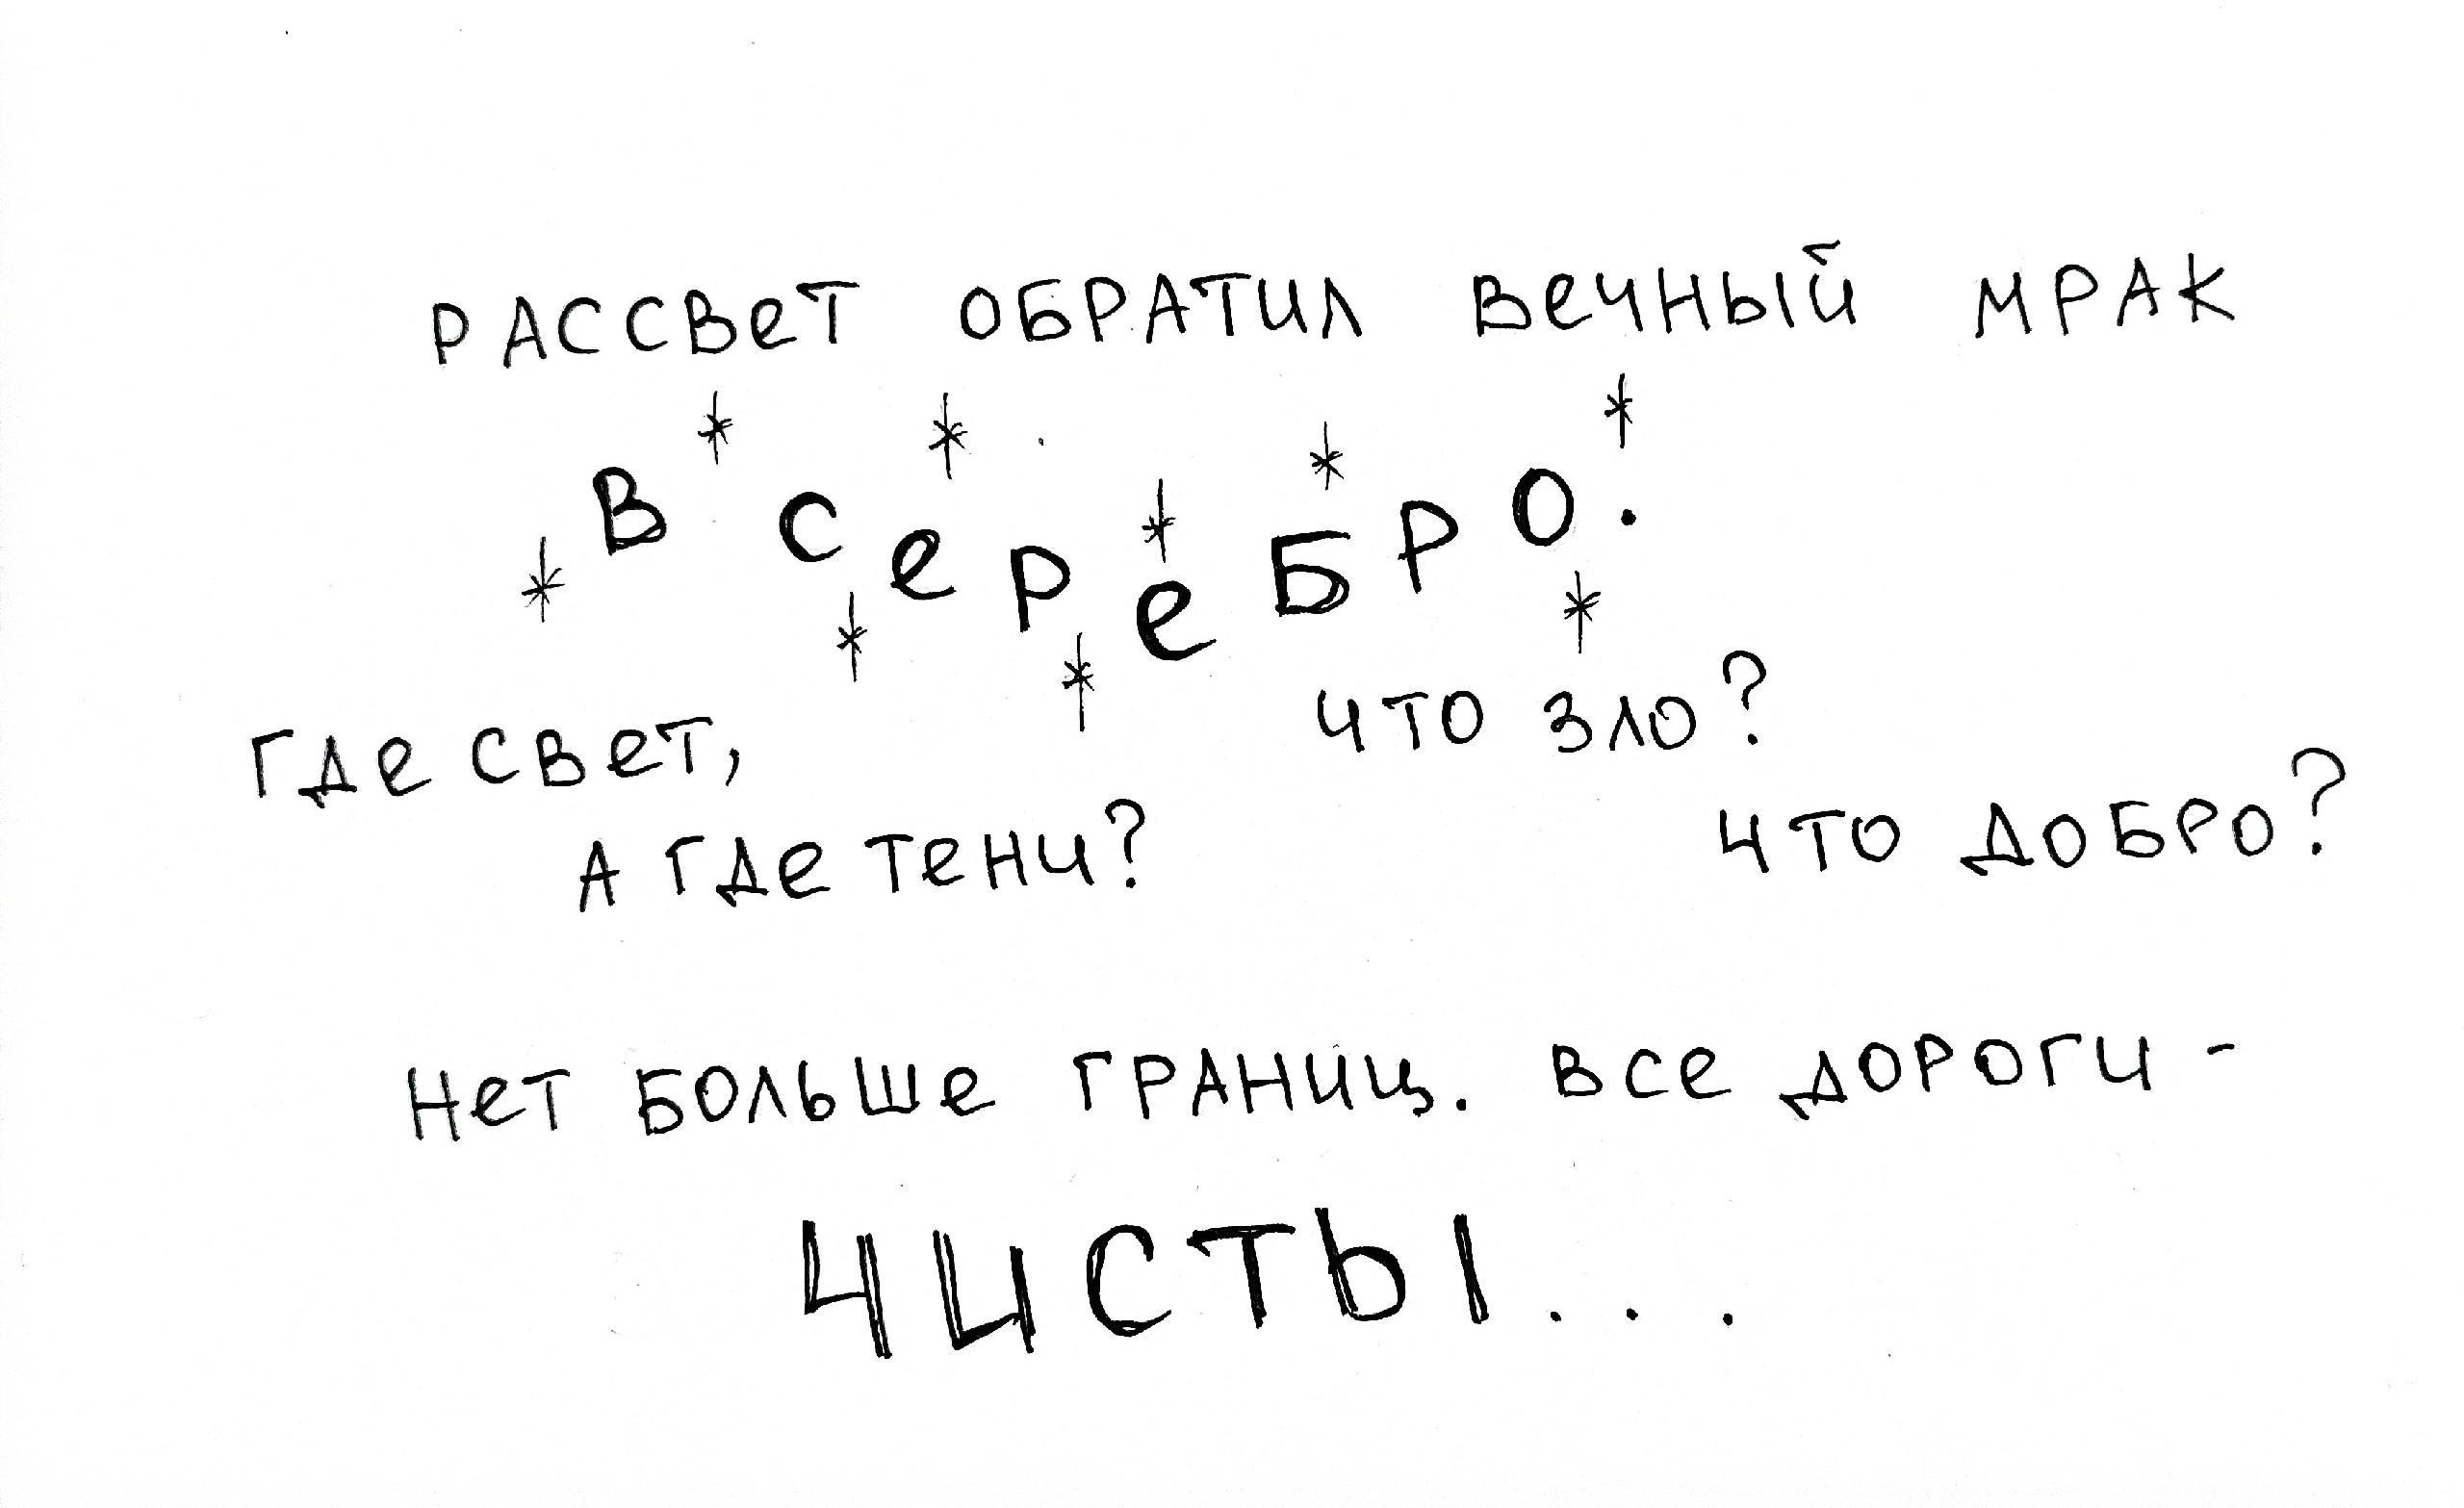 РАССВеТ ОБРАТИЛ ВеЧНЫЙ МРАК
В СеРеБРО.
ГДе СВеТ,
А ГДе ТеНИ?
ЧТО ЗЛО?
ЧТО ДОБРО?
НеТ БОЛЬШе ГРАНИЦ. ВСе ДОРОГИ -
ЧИСТЫ...